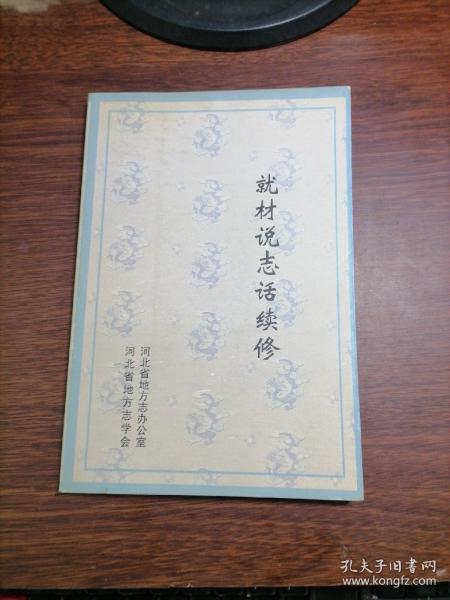 就材说志话续修
河北省地方志办公室
河北省地方志学会
孔夫子旧书网
www.kongfz.com